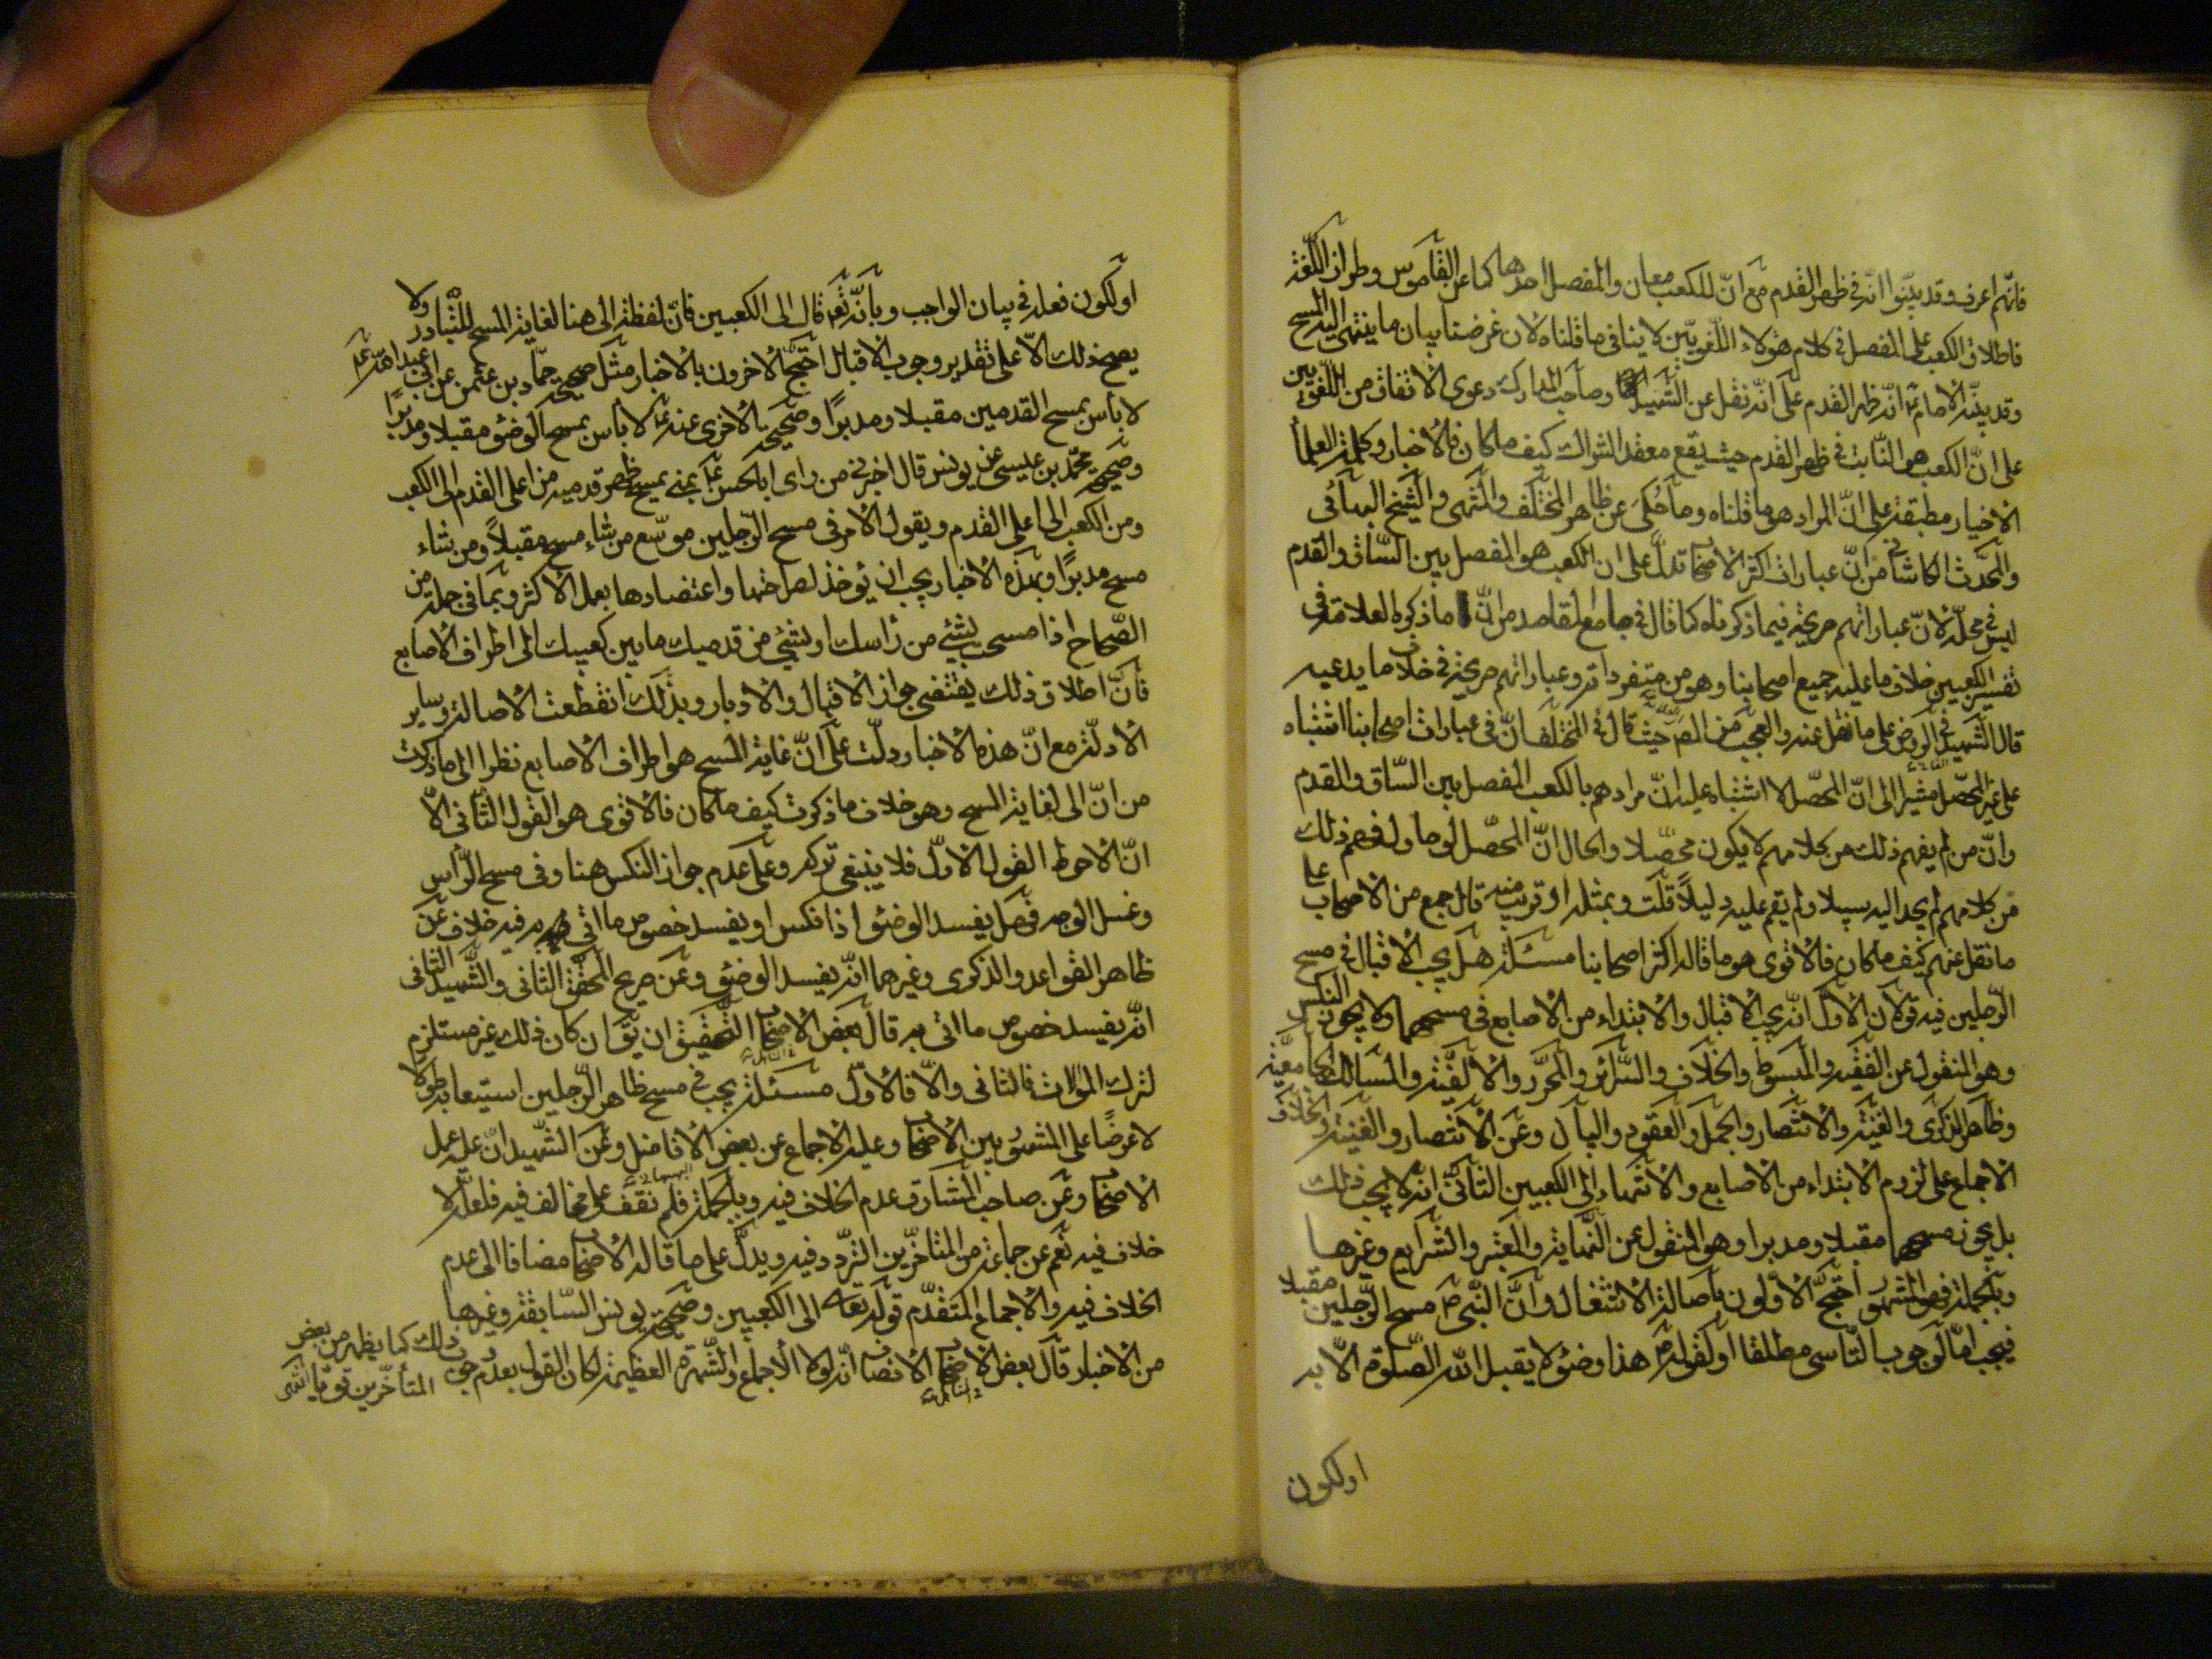 فانهم اعرف وقد بيّنوا انّه في ظهر القدم مع انّ للكعب معان والمفصل احدها كما عن القاموس وطراز اللّغة
فاطلاق الكعب على المفصل في كلام هؤلاء اللّغويّين لا ينافي ما قلناه لان غرضنا بيان ما ينتهى اليه المسح
وقد بيّنه الامام ع انّه ظهر القدم على انّه نقل عن الشهيد وصاحب المدارك دعوى الاتفاق من اللّغويين
على انّ الكعب هو النّابت في ظهر القدم حيث يقع معقد الشراك كيف ما كان فالاخبار وكلمة العلماء
الاخيار مطبقة على انّ المراد هو ما قلناه وما حُكى عن ظاهر المختلف والمنتهى والشيخ البهائى
والمحدّث الكاشانى من انّ عبارات اكثر الاصحاب تدلّ على ان الكعب هو المفصل بين السّاق والقدم
ليس في محلّه لانّ عباراتهم صريحة فيما ذكرناه كما قال في جامع المقاصد من انّ ما ذكره العلامة في
تفسير الكعبين خلاف ما عليه جميع اصحابنا وهو من متفرداته وعباراتهم صريحة في خلاف ما يدعيه
قال الشهيد في الروض على ما نقل عنه والعجب من المصـ حيث قال في المختلف انّ في عبارات اصحابنا اشتباه
على غير المحصّل مشيرا الى انّ المحصّل لا اشتباه عليه انّ مرادهم بالكعب المفصل بين السّاق والقدم
وانّ من لم يفهم ذلك من كلامهم لا يكون محصّلا والحال انّ المحصّل لو حاول فهم ذلك
من كلامهم لم يجد اليه سبيلا ولم يقم عليه دليلاً قلت وبمثله او قريب منه قال جمع من الاصحاب على
ما نقل عنهم كيف ما كان فالاقوى هو ما قاله اكثر اصحابنا مسئلة هل يجب الاقبال في مسح
الرّجلين فيه قولان الاوّل انّه يجب الاقبال والابتداء من الاصابع في مسحهما ولا يجوز النكس
وهو المنقول عن الفقيه والمبسوط والخلاف والسّرائر والمحرّر والالفيّة والمسالك الجامعيّة
وظاهر الذكرى والغنية والانتصار والجمل والعقود والبيان وعن الانتصار والغنية والخلاف
الاجماع على لزوم الابتداء من الاصابع والانتهاء الى الكعبين الثانى انّه لا يجب ذلك
بل يجوز مسحهما مقبلا ومدبرا وهو المنقول عن النّهاية والمعتبر والشرايع وغيرها
وبالجملة فهو المشهور احتجّ الاوّلون باصالة الاشتغال وانّ النّبى ص مسح الرّجلين مقبلا
فيجب امّا لوجوب التّاسى مطلقا او لقوله ص هذا وضوء لا يقبل الله الصّلوة الّا به
اولكون
اولكون فعله في بيان الواجب وبانّه تعم قال الى الكعبين فانّ لفظة الى هنا لغاية المسح للتّبادر ولا
يصح ذلك الّا على تقدير وجوب الاقبال احتجّ الاخرون بالاخبار مثل صحيح حمّاد بن عثمن عن ابى عبد الله ع
لا بأس بمسح القدمين مقبلا ومدبرًا وصحيحه الاخرى عنه ع لا بأس بمسح الوضوء مقبلا ومدبرًا
وصحيح محمّد بن عيسى عن يونس قال اخبرنى من راى ابا الحسن ع بمنى يمسح ظهر قدميه من اعلى القدم الى الكعب
ومن الكعب الى اعلى القدم ويقول الامر في مسح الرّجلين موسّع من شاء مسح مقبلاً ومن شاء
مسح مدبرًا وبهذه الاخبار يجب ان يؤخذ لصراحتها واعتضادها بعمل الاكثر وبما في جملة من
الصّحاح اذا مسحت بشئ من رأسك او بشئ من قدميك ما بين كعبيك الى اطراف الاصابع
فانّ اطلاق ذلك يقتضى جواز الاقبال والادبار وبذلك انقطعت الاصالة وساير
الادلّة مع انّ هذه الاخبار دلّت على انّ غاية المسح هو اطراف الاصابع نظرا الى ما ذكرت
من انّ الى لغاية المسح وهو خلاف ما ذكرت كيف ما كان فالاقوى هو القول الثّانى الّا
انّ الاحوط القول الاوّل فلا ينبغى تركه وعلى عدم جواز النكس هنا وفي مسح الرّأس
وغسل الوجه فهل يفسد الوضوء اذا نكس او يفسد خصوص ما اتى به فيه خلاف عن
ظاهر القواعد والذكرى وغيرهما انّه يفسد الوضوء وعن صريح المحقّق الثانى والشّهيد الثانى
انّه يفسد خصوص ما اتى به قال بعض الاصحاب التّحقيق ان يقّ ان كان ذلك غير مستلزم
لترك الموالات فالثانى والّا فالاوّل مسئلة يجب في مسح ظاهر الرّجلين استيعابه طولا
لا عرضًا على المشهور بين الاصحاب وعليه الاجماع عن بعض الافاضل وعن الشّهيد انّ عليه عمل
الاصحاب وعن صاحب المشارق عدم الخلاف فيه وبالجملة فلم نقف على مخالف فيه فلعلّه لا
خلاف فيه نعم عن جماعة من المتاخّرين التّردّد فيه ويدلّ على ما قاله الاصحاب مضافا الى عدم
الخلاف فيه والاجماع المتقدّم قوله تعالى الى الكعبين وصحيحة يونس السّابقة وغيرها
من الاخبار قال بعض الاصحاب الانصاف انّه لولا الاجماع والشّهرة العظيمة لكان القول بعدم وجوب ذلك كما يظهر من بعض
المتأخّرين قويّا انتهى